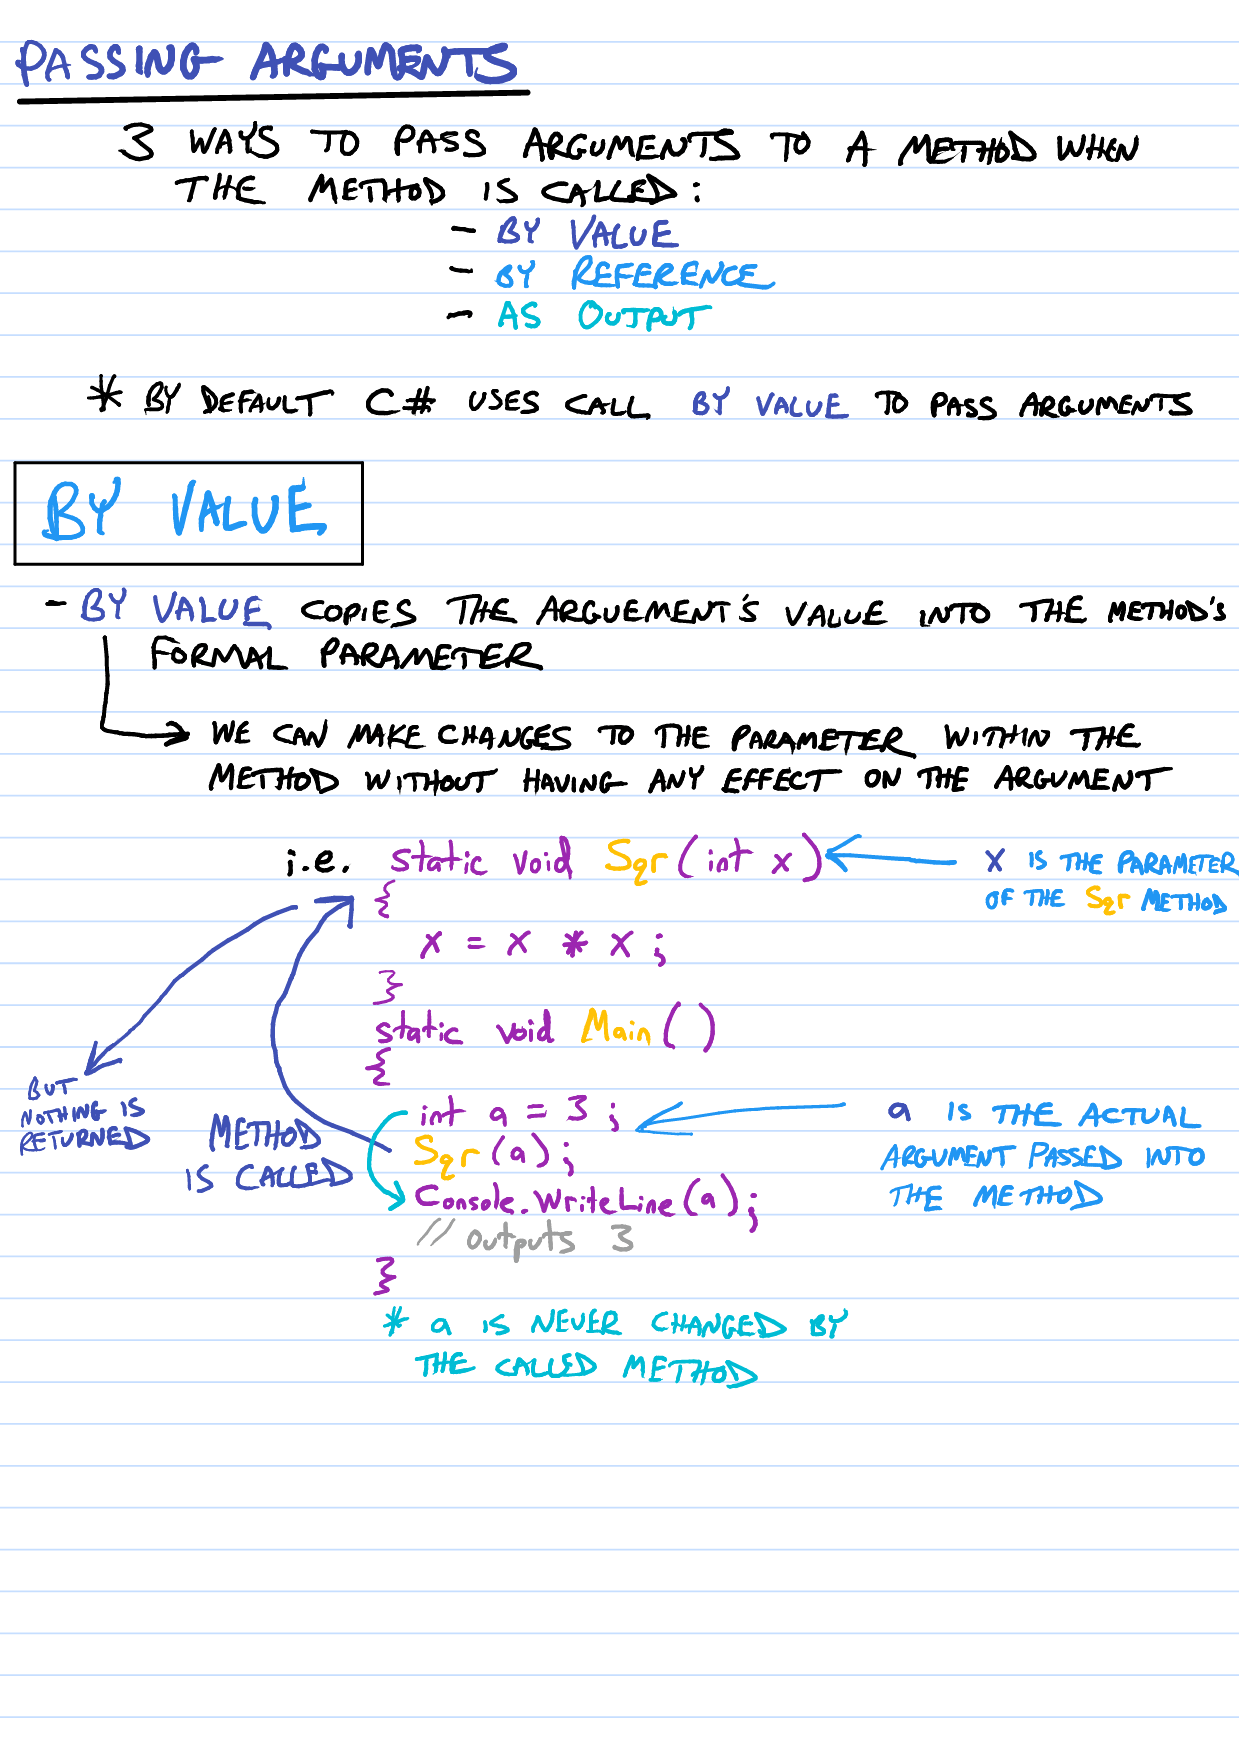 PASSING ARGUMENTS
3 WAYS TO PASS ARGUMENTS TO A METHOD WHEN
THE METHOD IS CALLED:
- BY VALUE
- BY REFERENCE
- AS OUTPUT
* BY DEFAULT C# USES CALL BY VALUE TO PASS ARGUMENTS
BY VALUE
- BY VALUE COPIES THE ARGUEMENT'S VALUE INTO THE METHOD'S
FORMAL PARAMETER
WE CAN MAKE CHANGES TO THE PARAMETER WITHIN THE
METHOD WITHOUT HAVING ANY EFFECT ON THE ARGUMENT
i.e. static void Sqr(int x)
X IS THE PARAMETER
OF THE Sqr METHOD
{
X = X * X;
}
static void Main()
{
BUT
NOTHING IS
RETURNED
METHOD
IS CALLED
int a = 3;
Sqr(a);
Console.WriteLine(a);
// outputs 3
}
a IS THE ACTUAL
ARGUMENT PASSED INTO
THE METHOD
* a IS NEVER CHANGED BY
THE CALLED METHOD